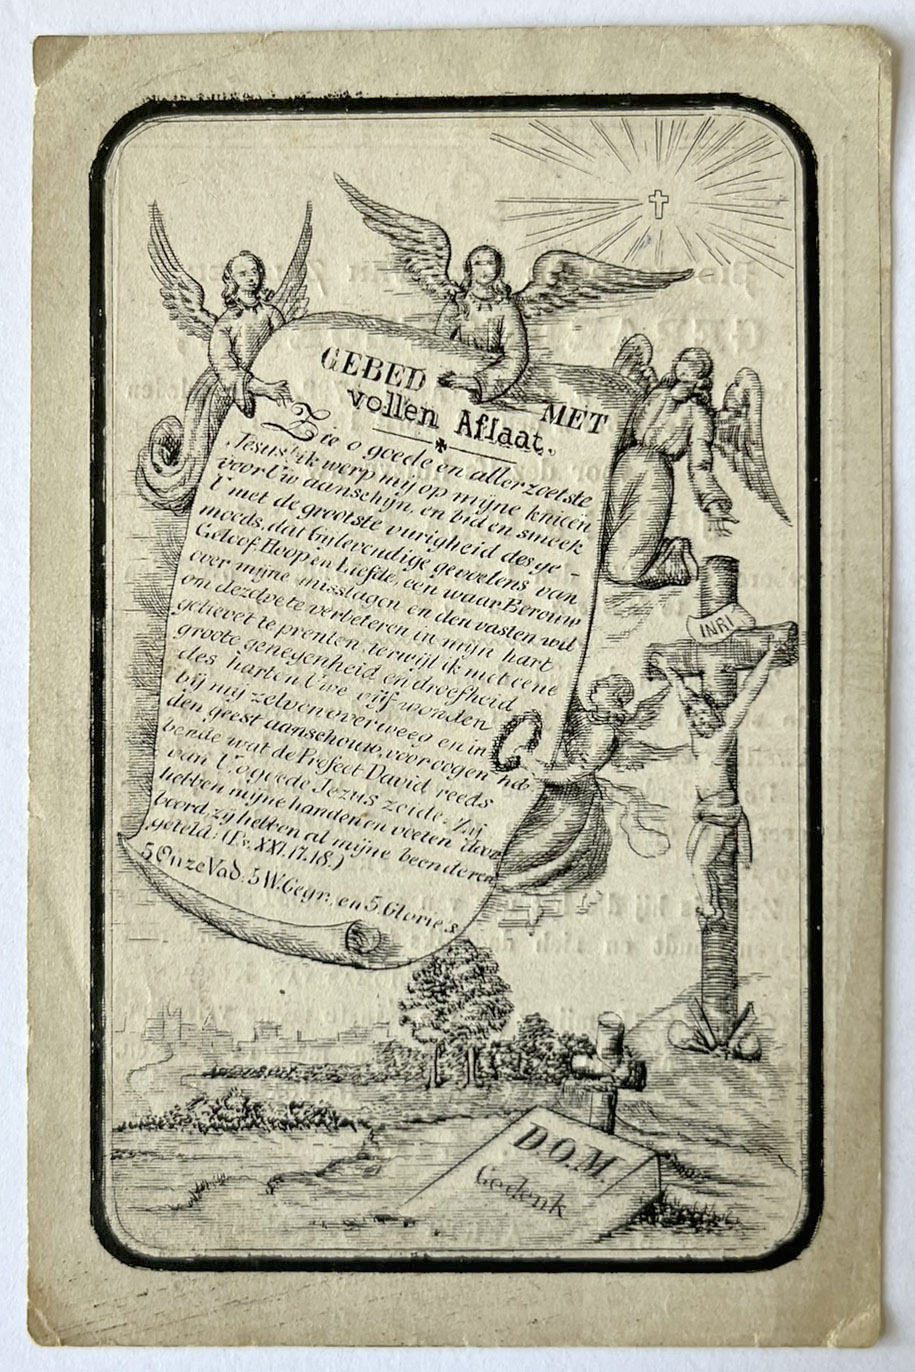 GEBED MET
vollen Aflaat.
Zie o goede en allerzoetste
Jesus! ik werp mij op mijne knieën
voor Uw aanschijn, en bid en smeek
U met de grootste vurigheid des ge-
moeds, dat Gij levendige gevoelens van
Geloof, Hoop en Liefde, een waar Berouw
over mijne misslagen en den vasten wil
om dezelve te verbeteren in mijn hart
gelievet te prenten, terwijl ik met eene
groote genegenheid en droefheid
des harten Uwe vijf wonden
bij mij zelven overweeg en in
den geest aanschouw, voor oogen heb-
bende wat de Profeet David reeds
van U, o goede Jezus zeide: Zij
hebben mijne handen en voeten door
boord, zij hebben al mijne beenderen
geteld: (Ps. XXI. 17. 18.)
5 Onze Vad. 5 W. Gegr. en 5 Glorie's
INRI
D.O.M.
Gedenk